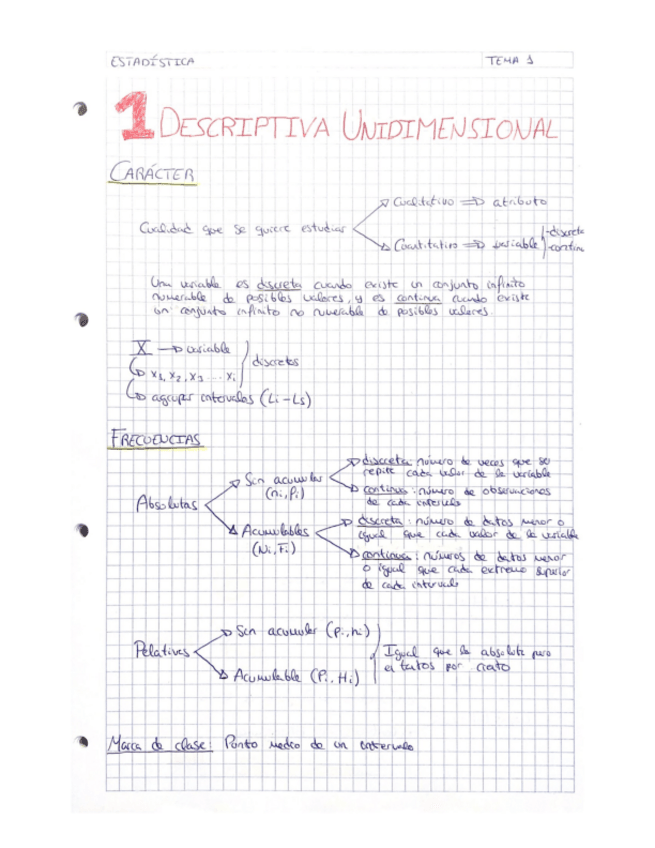 ESTADÍSTICA TEMA 1
1 DESCRIPTIVA UNIDIMENSIONAL
CARÁCTER
Cualidad que se quiere estudiar
Cualitativo => atributo
Cuantitativo => variable
-discreta
-contin
Una variable es discreta cuando existe un conjunto infinito
numerable de posibles valores, y es continua cuando existe
un conjunto infinito no numerable de posibles valores.
X → variable
x1, x2, x3 ... xi
discretos
agrupar intervalos (Li-Ls)
FRECUENCIAS
Absolutas
Sin acumular
(ni, fi)
discreta: número de veces que se
repite cada valor de la variable
continua: número de observaciones
de cada intervalo
Acumulables
(Ni, Fi)
discreta: número de datos menor o
igual que cada valor de la variable
continua: números de datos menor
o igual que cada extremo superior
de cada intervalo
Relativas
Sin acumular (pi, hi)
Acumulable (Pi, Hi)
Igual que la absoluta pero
en tantos por ciento
Marca de clase: Punto medio de un intervalo